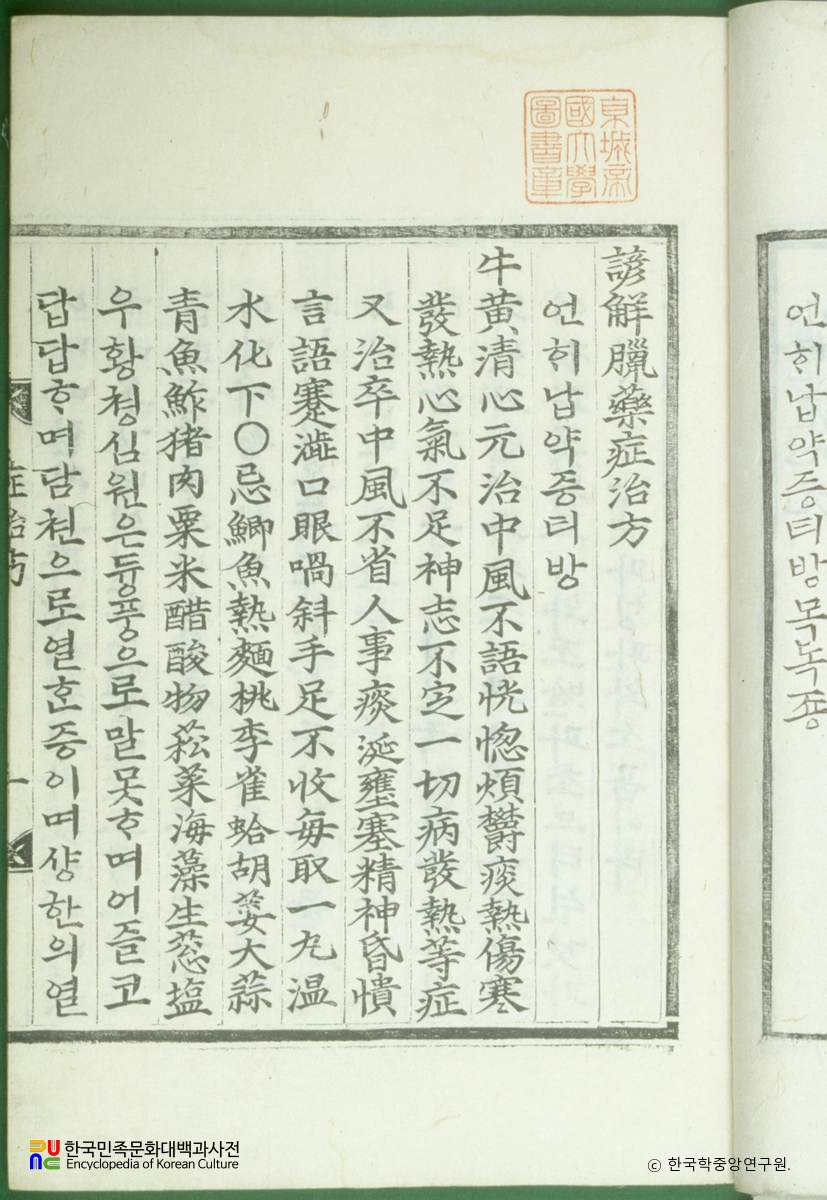 언ᄒᆡ납약증티방목녹죵
東城帝
國大學
圖書章
諺解臘藥症治方
언ᄒᆡ납약증티방
牛黃清心元治中風不語恍惚煩鬱痰熱傷寒
發熱心氣不足神志不定一切病發熱等症
又治卒中風不省人事痰涎壅塞精神昏憒
言語蹇澁口眼喎斜手足不收每取一丸溫
水化下〇忌鯽魚熱麵桃李雀蛤胡荽大蒜
青魚鮓猪肉粟米醋酸物菘菜海藻生葱塩
우황쳥심원은듕풍으로말못ᄒᆞ며어즐코
답답ᄒᆞ며담쳔으로열ᄒᆞᆫ증이며샹한의열
症治方
一
한국민족문화대백과사전
Encyclopedia of Korean Culture
© 한국학중앙연구원.